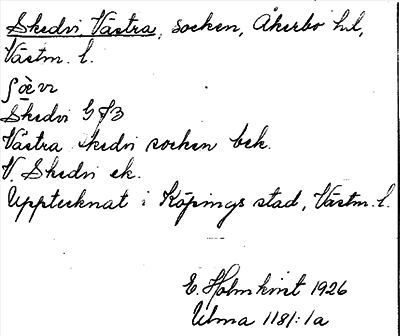 Skedvi, Västra, socken, Åkerbo hd,
Västm. l.
Skedvi GJB
Västra skedvi socken bek.
V. Skedvi ek.
Upptecknat i Köpings stad, Västm. l.
E. Holmkvist 1926
Ulma 1181:1a